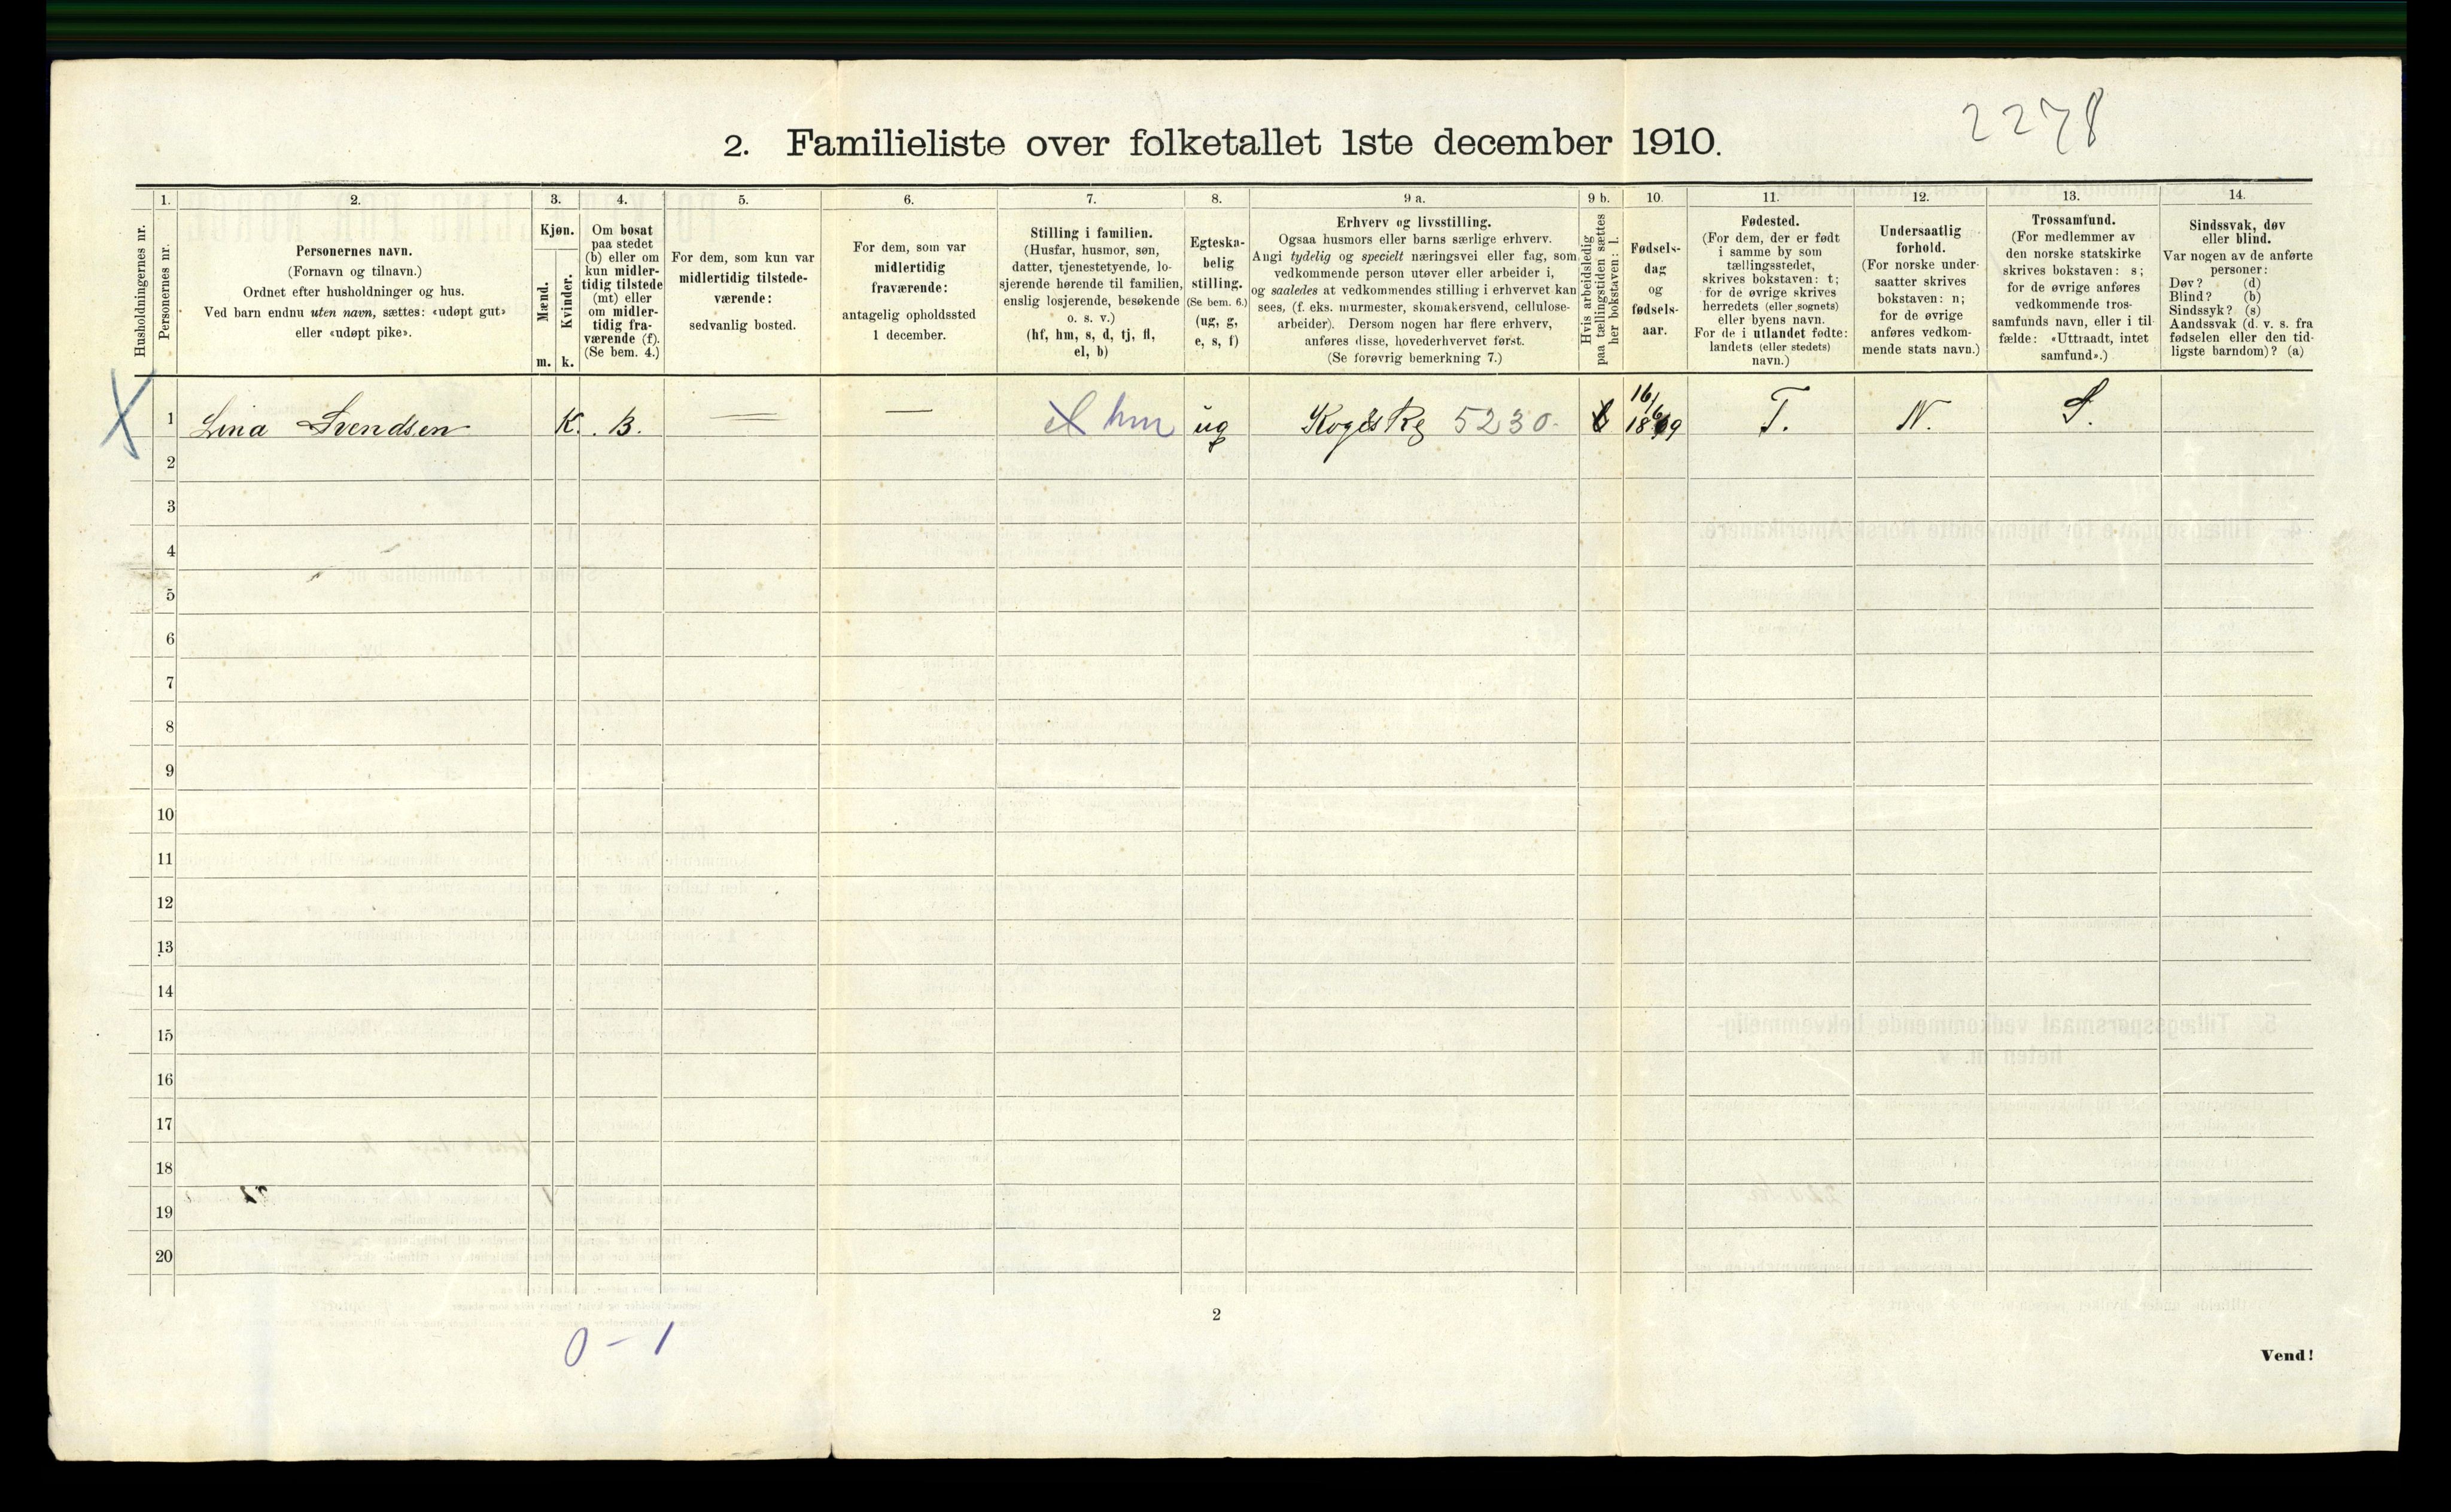 2278
2. Familieliste over folketallet 1ste december 1910.
Husholdningernes nr.
1.
Personernes nr.
2.
Personernes navn.
(Fornavn og tilnavn.)
Ordnet efter husholdninger og hus.
Ved barn endnu uten navn, sættes: «udøpt gut»
eller «udøpt pike».
3.
Kjøn.
Mænd.
Kvinder.
m. k.
4.
Om bosat
paa stedet
(b) eller om
kun midler-
tidig tilstede
(mt) eller
om midler-
tidig fra-
værende (f).
(Se bem. 4.)
5.
For dem, som kun var
midlertidig tilstede-
værende:
sedvanlig bosted.
6.
For dem, som var
midlertidig
fraværende:
antagelig opholdssted
1 december.
7.
Stilling i familien.
(Husfar, husmor, søn,
datter, tjenestetyende, lo-
sjerende hørende til familien,
enslig losjerende, besøkende
o. s. v.)
(hf, hm, s, d, tj, fl,
el, b)
8.
Egteska-
belig
stilling.
(Se bem. 6.)
(ug, g,
e, s, f)
9 a.
Erhverv og livsstilling.
Ogsaa husmors eller barns særlige erhverv.
Angi tydelig og specielt næringsvei eller fag, som
vedkommende person utøver eller arbeider i,
og saaledes at vedkommendes stilling i erhvervet kan
sees, (f. eks. murmester, skomakersvend, cellulose-
arbeider). Dersom nogen har flere erhverv,
anføres disse, hovederhvervet først.
(Se forøvrig bemerkning 7.)
9 b.
Hvis arbeidsledig
paa tællingstiden sættes
her bokstaven: l.
10.
Fødsels-
dag
og
fødsels-
aar.
11.
Fødested.
(For dem, der er født
i samme by som
tællingsstedet,
skrives bokstaven: t;
for de øvrige skrives
herredets (eller sognets)
eller byens navn.
For de i utlandet fødte:
landets (eller stedets)
navn.)
12.
Undersaatlig
forhold.
(For norske under-
saatter skrives
bokstaven: n;
for de øvrige
anføres vedkom-
mende stats navn.)
13.
Trossamfund.
(For medlemmer av
den norske statskirke
skrives bokstaven: s;
for de øvrige anføres
vedkommende tros-
samfunds navn, eller i til-
fælde: «Uttraadt, intet
samfund».)
14.
Sindssvak, døv
eller blind.
Var nogen av de anførte
personer:
Døv? (d)
Blind? (b)
Sindssyk? (s)
Aandssvak (d. v. s. fra
fødselen eller den tid-
ligste barndom)? (a)
1 Lina Svendsen K. B. el hm ug 5230. 16/6 1869 T. N. S.
2
3
4
5
6
7
8
9
10
11
12
13
14
15
16
17
18
19
20
2
0 - 1
Vend!